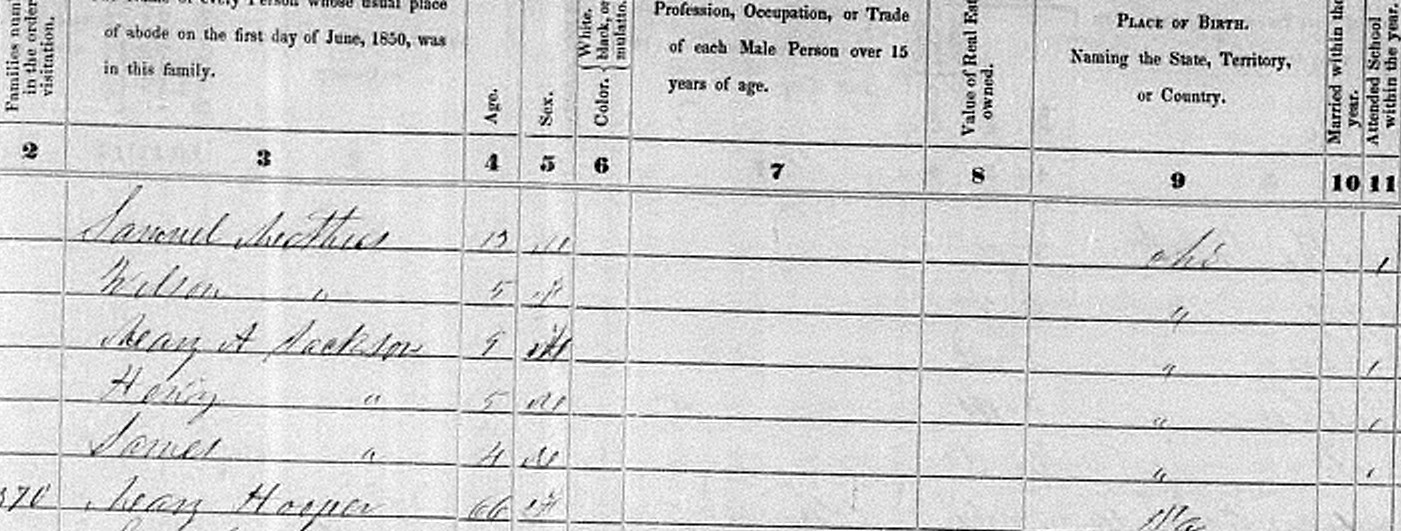 Families num
in the order
visitation.
of every Person whose usual place
of abode on the first day of June, 1850, was
in this family.
Age.
Sex.
White,
black, or
mulatto.
Color.
Profession, Occupation, or Trade
of each Male Person over 15
years of age.
Value of Real Est
owned.
PLACE OF BIRTH.
Naming the State, Territory,
or Country.
Married within the
year.
Attended School
within the year.
2 3 4 5 6 7 8 9 10 11
Samuel 13 M Ohio 1
Wilson " 5 "
Mary A Jackson 9 " 1
Henry " 5 M " 1
James " 4 M " 1
370 Mary Hooper 66 Va